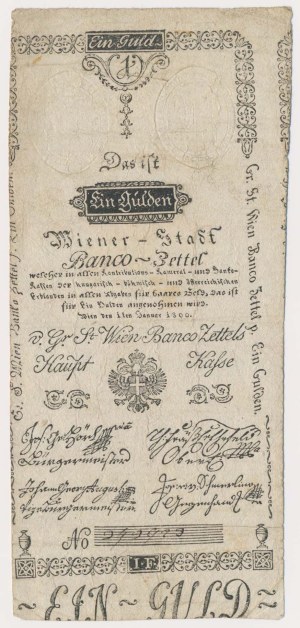 Ein Guld.
1
Das ist
Ein Gulden
Wiener ~ Stadt
Banco ~ Zettel
welcher in allen Kontributions- Kameral- und Banko-
Kassen der hungarisch- böhmisch- und österreichischen
Erblanden in allen Abgaben für baares Geld, das ist
für Ein Gulden angenohmen wird.
Wien den 1ten Januer 1800.
v. Gr. St. Wien Banco Zettels
Haupt Kasse
Gr. St. Wien Banco Zettel p. Ein Gulden.
Gr. St. Wien Banco Zettel p. Ein Gulden
Bürgermeister
Vizebürgermeister
No
1 F
~ EIN ~ GULD ~